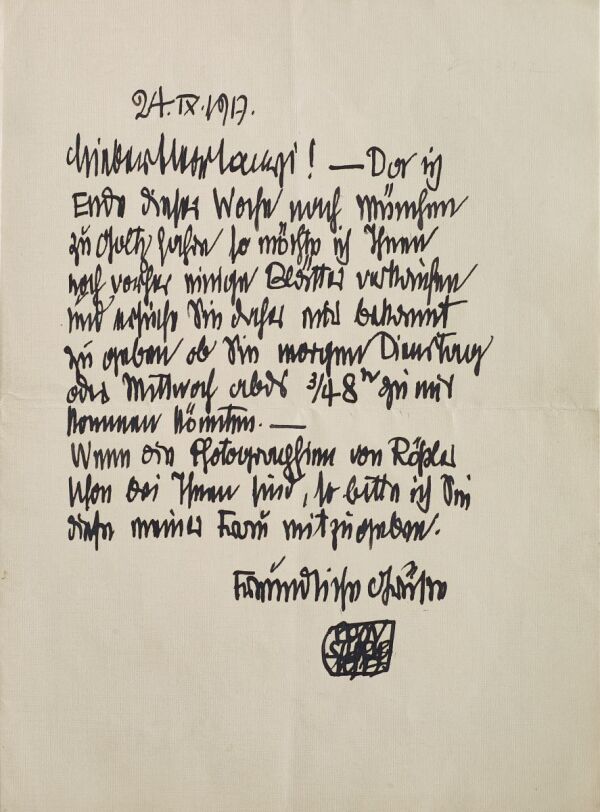 24.IX.1917.
Lieber Herr Lanyi! — Da ich
Ende dieser Woche nach München
zu Goltz fahre so möchte ich Ihnen
noch vorher einige Blätter verkaufen
und ersuche Sie daher mir bekannt
zu geben ob Sie morgen Dienstag
oder Mittwoch abds ¾8ʰ zu mir
kommen könnten. —
Wenn die Photographien von Rößler
schon bei Ihnen sind, so bitte ich Sie
diese meiner Frau mitzugeben.
Freundliche Grüße
EGON
SCHIELE